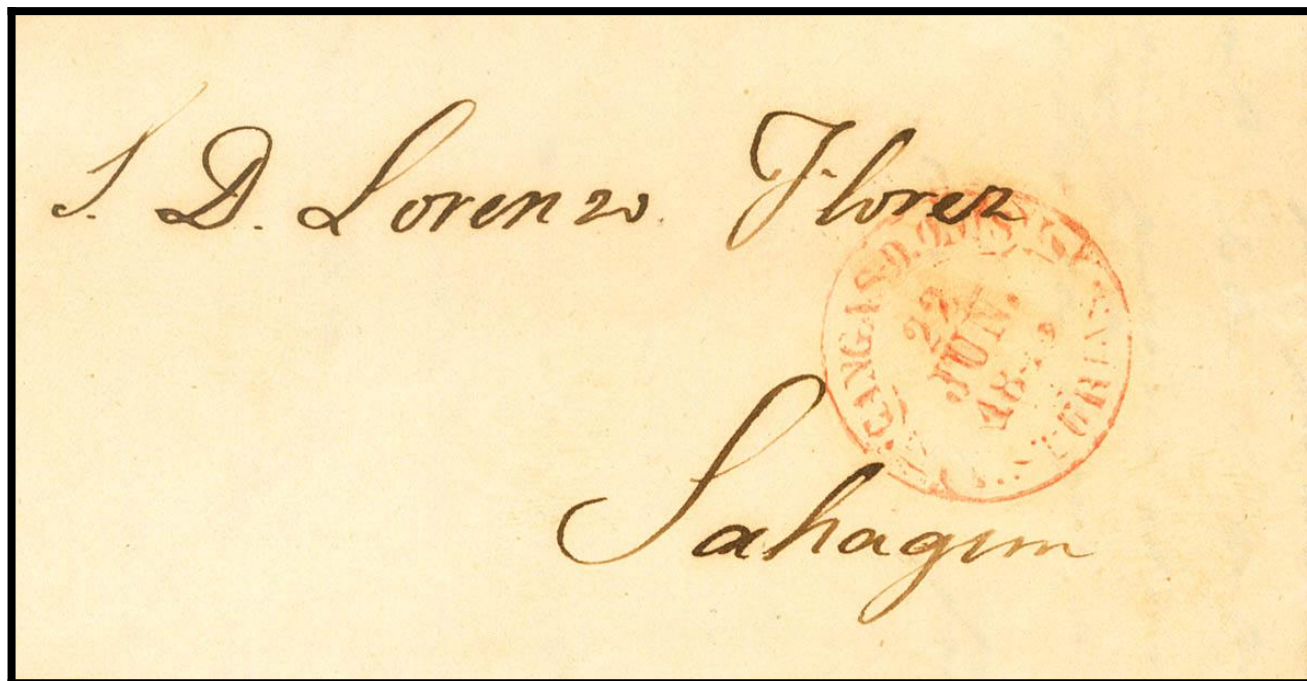 S. D. Lorenzo Florez
CANGAS D. ONIS
22
JUN.
Sahagun